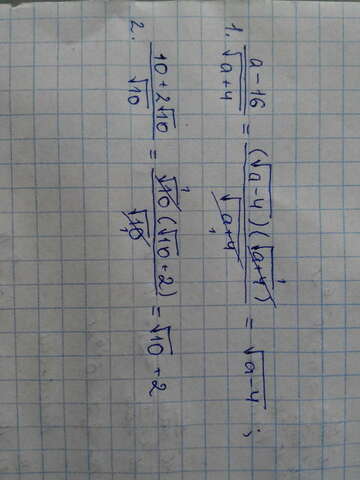 1. a-16/√a+4 = (√a-4)(√a+4)¹/√a+4₁ = √a-4 ;
2. 10+2√10/√10 = √10¹(√10+2)/√10₁ = √10+2